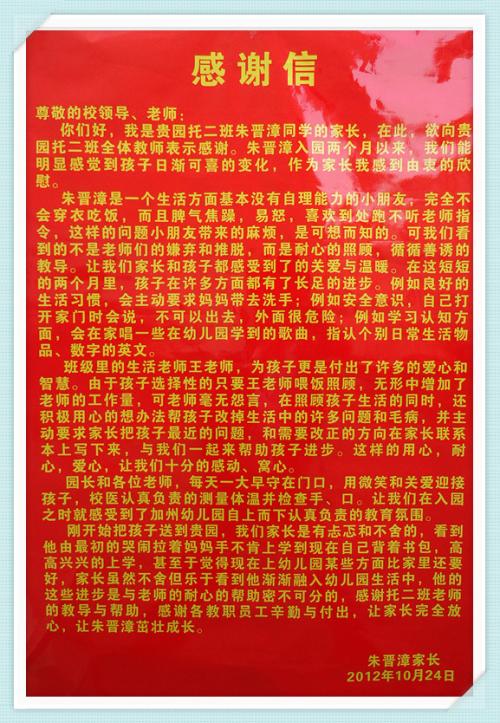 感谢信
尊敬的校领导、老师：
你们好，我是贵园托二班朱晋漳同学的家长，在此，欲向贵
园托二班全体教师表示感谢。朱晋漳入园两个月以来，我们能
明显感觉到孩子日渐可喜的变化，作为家长我感到由衷的欣
慰。
朱晋漳是一个生活方面基本没有自理能力的小朋友，完全不
会穿衣吃饭，而且脾气焦躁，易怒，喜欢到处跑不听老师指
令，这样的问题小朋友带来的麻烦，是可想而知的。可我们看
到的不是老师们的嫌弃和推脱，而是耐心的照顾，循循善诱的
教导。让我们家长和孩子都感受到了的关爱与温暖。在这短短
的两个月里，孩子在许多方面都有了长足的进步。例如良好的
生活习惯，会主动要求妈妈带去洗手；例如安全意识，自己打
开家门时会说，不可以出去，外面很危险；例如学习认知方
面，会在家唱一些在幼儿园学到的歌曲，指认个别日常生活物
品、数字的英文。
班级里的生活老师王老师，为孩子更是付出了许多的爱心和
智慧。由于孩子选择性的只要王老师喂饭照顾，无形中增加了
老师的工作量，可老师毫无怨言，在照顾孩子生活的同时，还
积极用心的想办法帮孩子改掉生活中的许多问题和毛病，并主
动要求家长把孩子最近的问题，和需要改正的方向在家长联系
本上写下来，与我们一起来帮助孩子进步。这样的用心，耐
心，爱心，让我们十分的感动、窝心。
园长和各位老师，每天一大早守在门口，用微笑和关爱迎接
孩子，校医认真负责的测量体温并检查手、口。让我们在入园
之时就感受到了加州幼儿园自上而下认真负责的教育氛围。
刚开始把孩子送到贵园，我们家长是有忐忑和不舍的，看到
他由最初的哭闹拉着妈妈手不肯上学到现在自己背着书包，高
高兴兴的上学，甚至于觉得现在上幼儿园某些方面比家里还要
好，家长虽然不舍但乐于看到他渐渐融入幼儿园生活中，他的
这些进步是与老师的耐心的帮助密不可分的，感谢托二班老师
的教导与帮助，感谢各教职员工辛勤与付出，让家长完全放
心，让朱晋漳茁壮成长。
朱晋漳家长
2012年10月24日